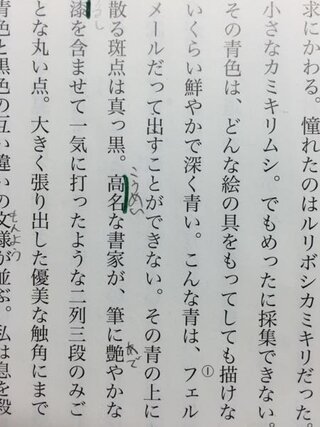 求にかわる。憧れたのはルリボシカミキリだった。
小さなカミキリムシ。でもめったに採集できない。
その青色は、どんな絵の具をもってしても描けな
①
いくらい鮮やかで深く青い。こんな青は、フェル
メールだって出すことができない。その青の上に
こうめい
あで
散る斑点は真っ黒。高名な書家が、筆に艶やかな
うるし
漆を含ませて一気に打ったような二列三段のみご
とな丸い点。大きく張り出した優美な触角にまで
もんよう
青色と黒色の互い違いの文様が並ぶ。私は息を殺